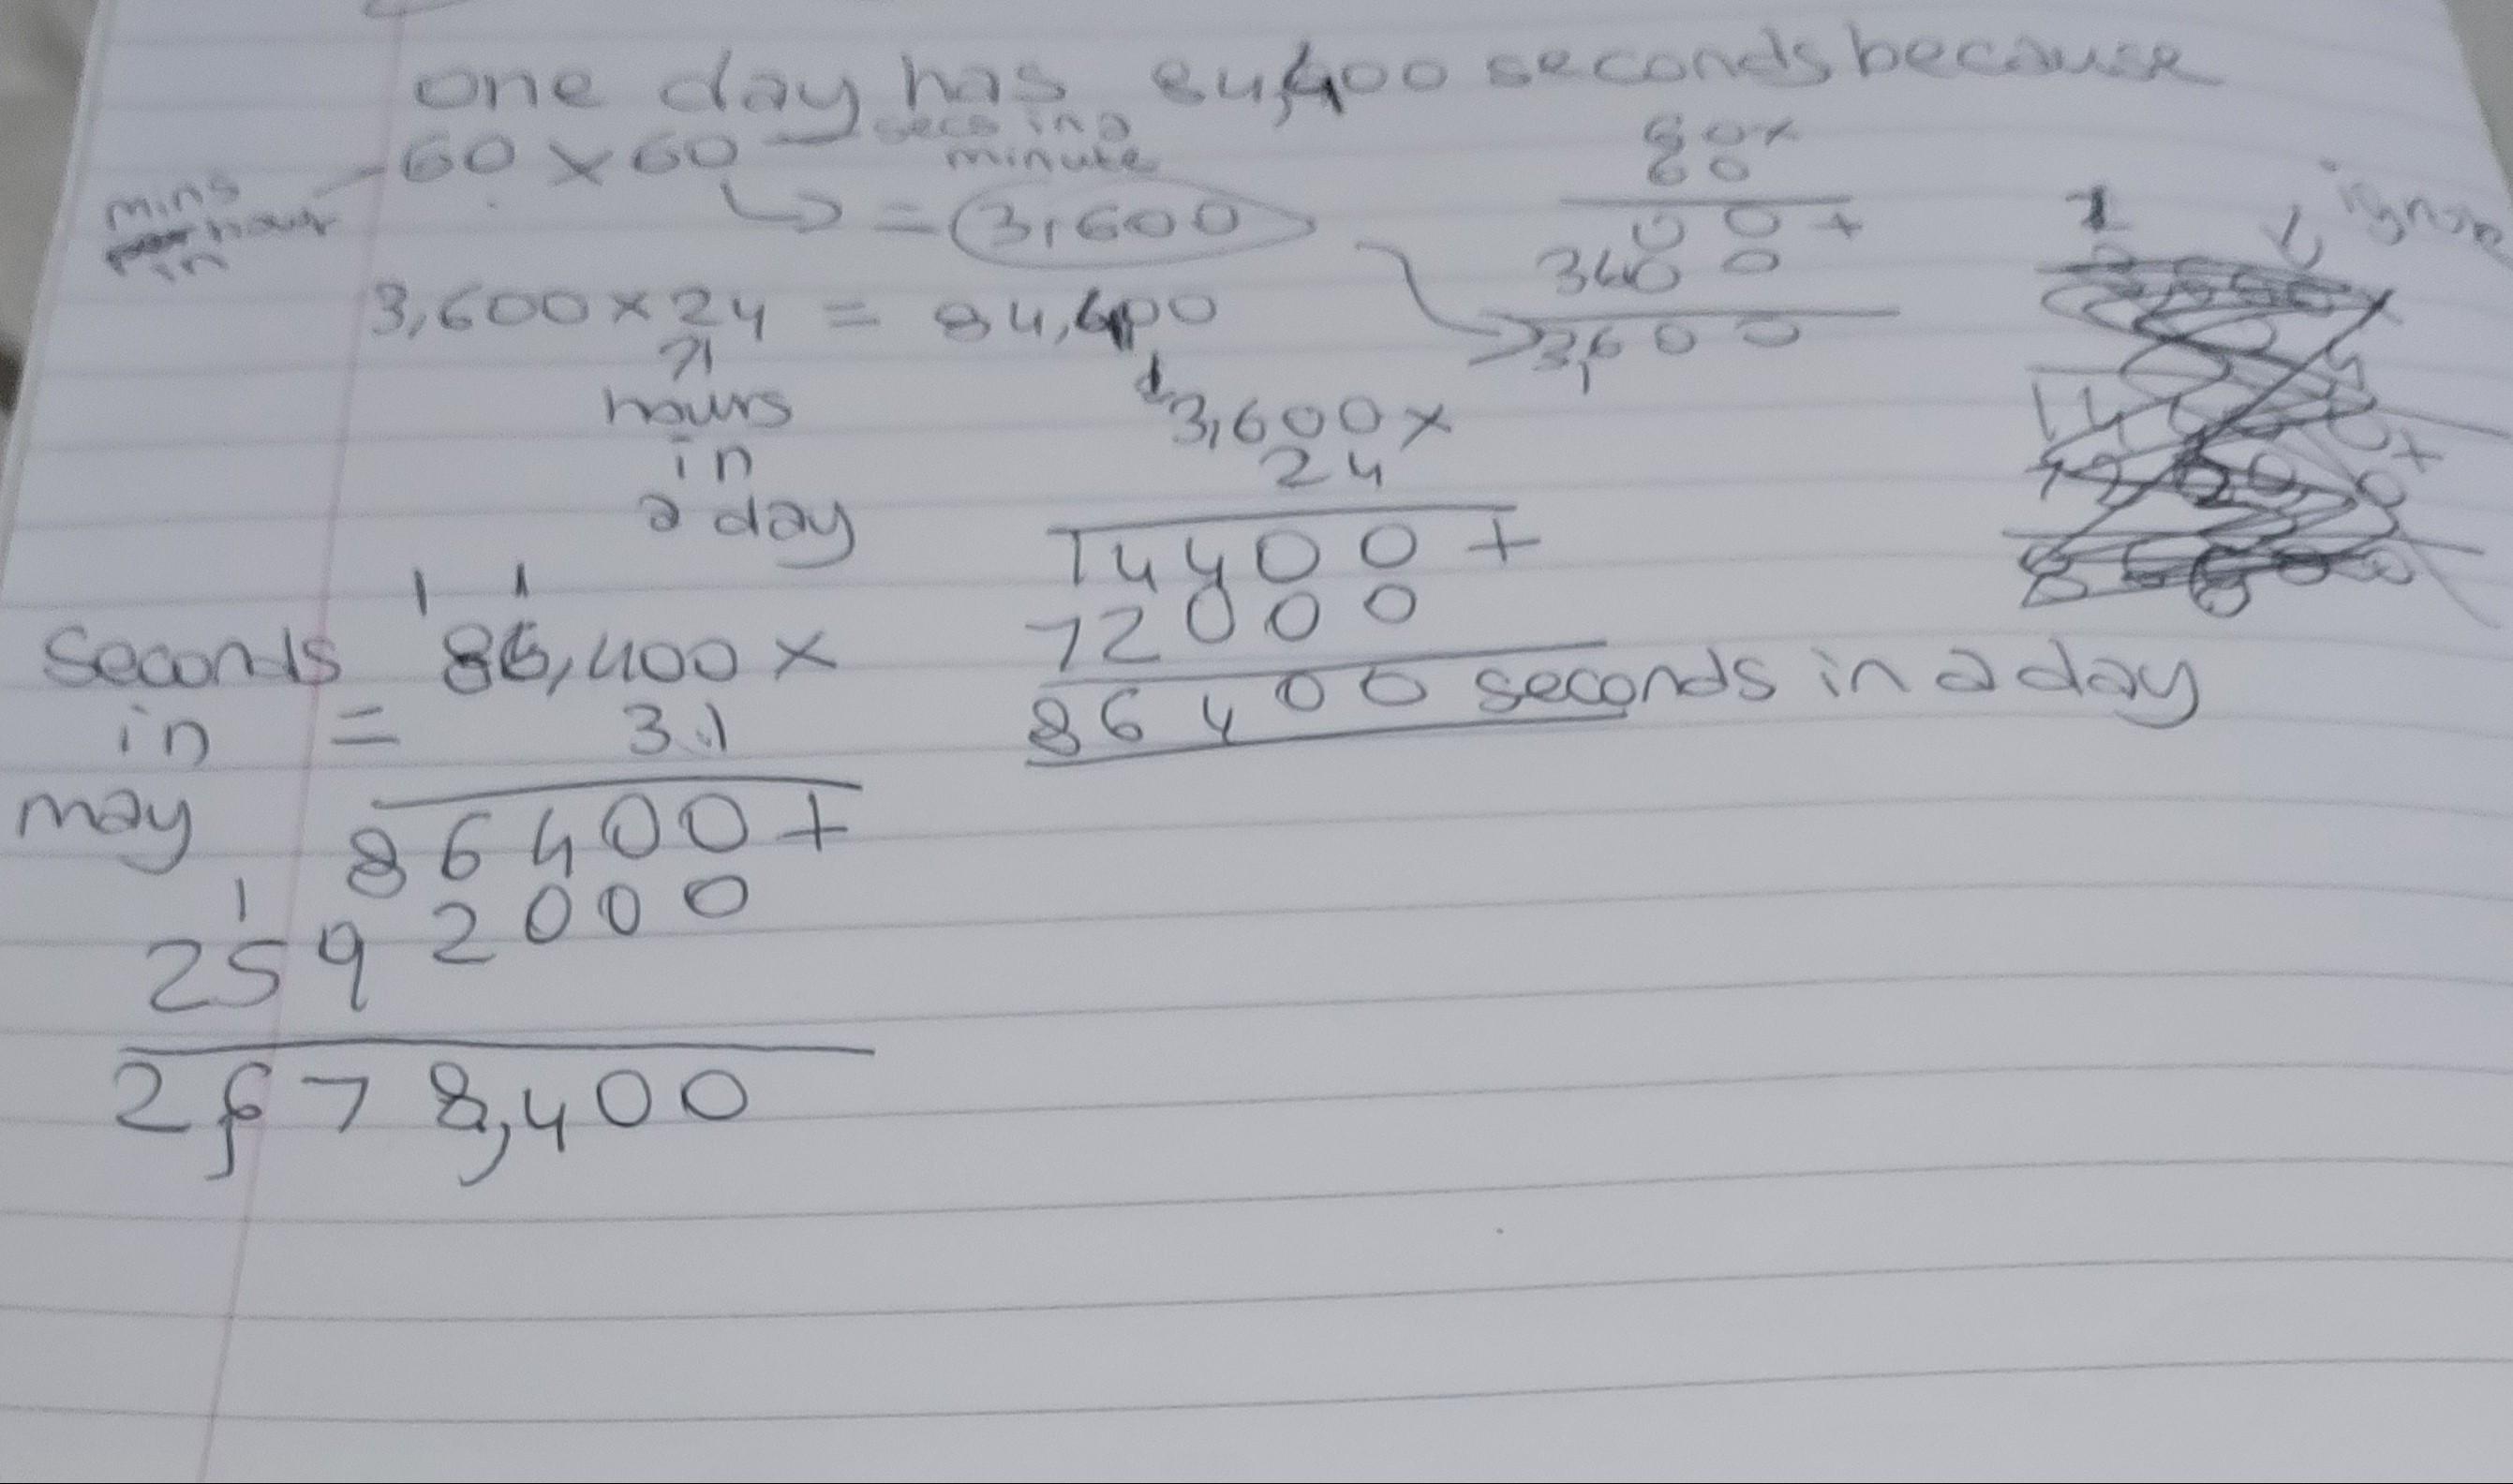 one day has 84,400 seconds because
60 x 60
secs in a
minute
mins
hour
in
= 3,600
60x
60
00+
3600
3,600
ignore
3,600 x 24 = 84,400
hours
in
a day
3,600 x
24
14400+
72000
86400 seconds in a day
1 1
seconds 86,400 x
in = 31
may
86400+
1
2592000
2,678,400